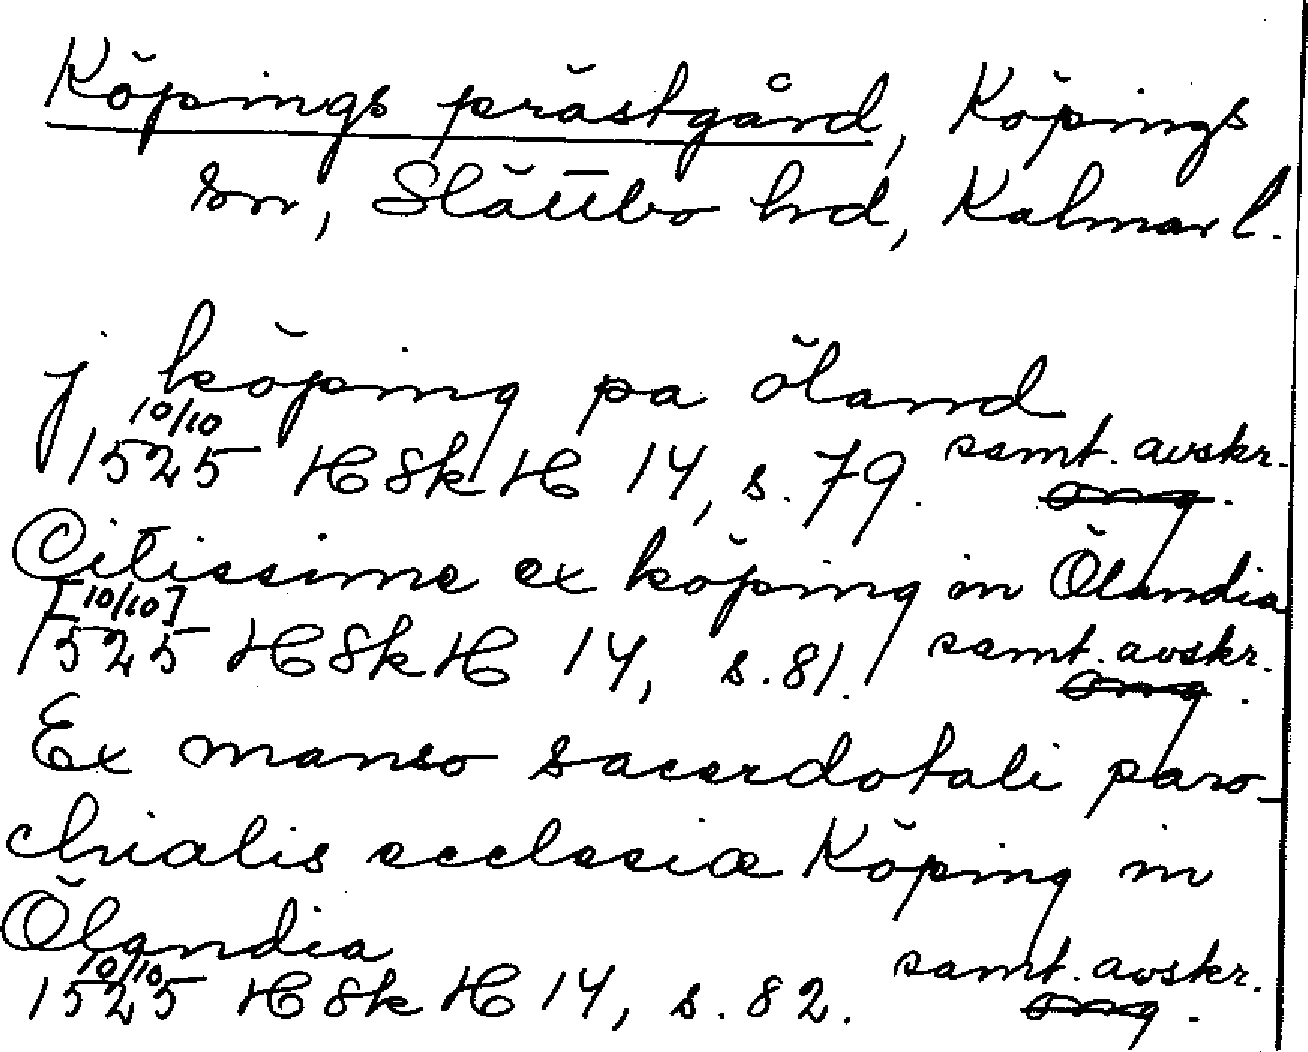 Köpings prästgård, Köpings
sn, Slättbo hd, Kalmar l.
j köping pa öland
10/10
1525 HSkH 14, s. 79. samt. avskr.
Citissime ex köping in Ölandia
[10/10]
1525 HSkH 14, s. 81. samt. avskr.
Ex manso sacerdotali paro-
chialis ecclesiæ Köping in
Ölandia
10/10
1525 HSkH 14, s. 82. samt. avskr.